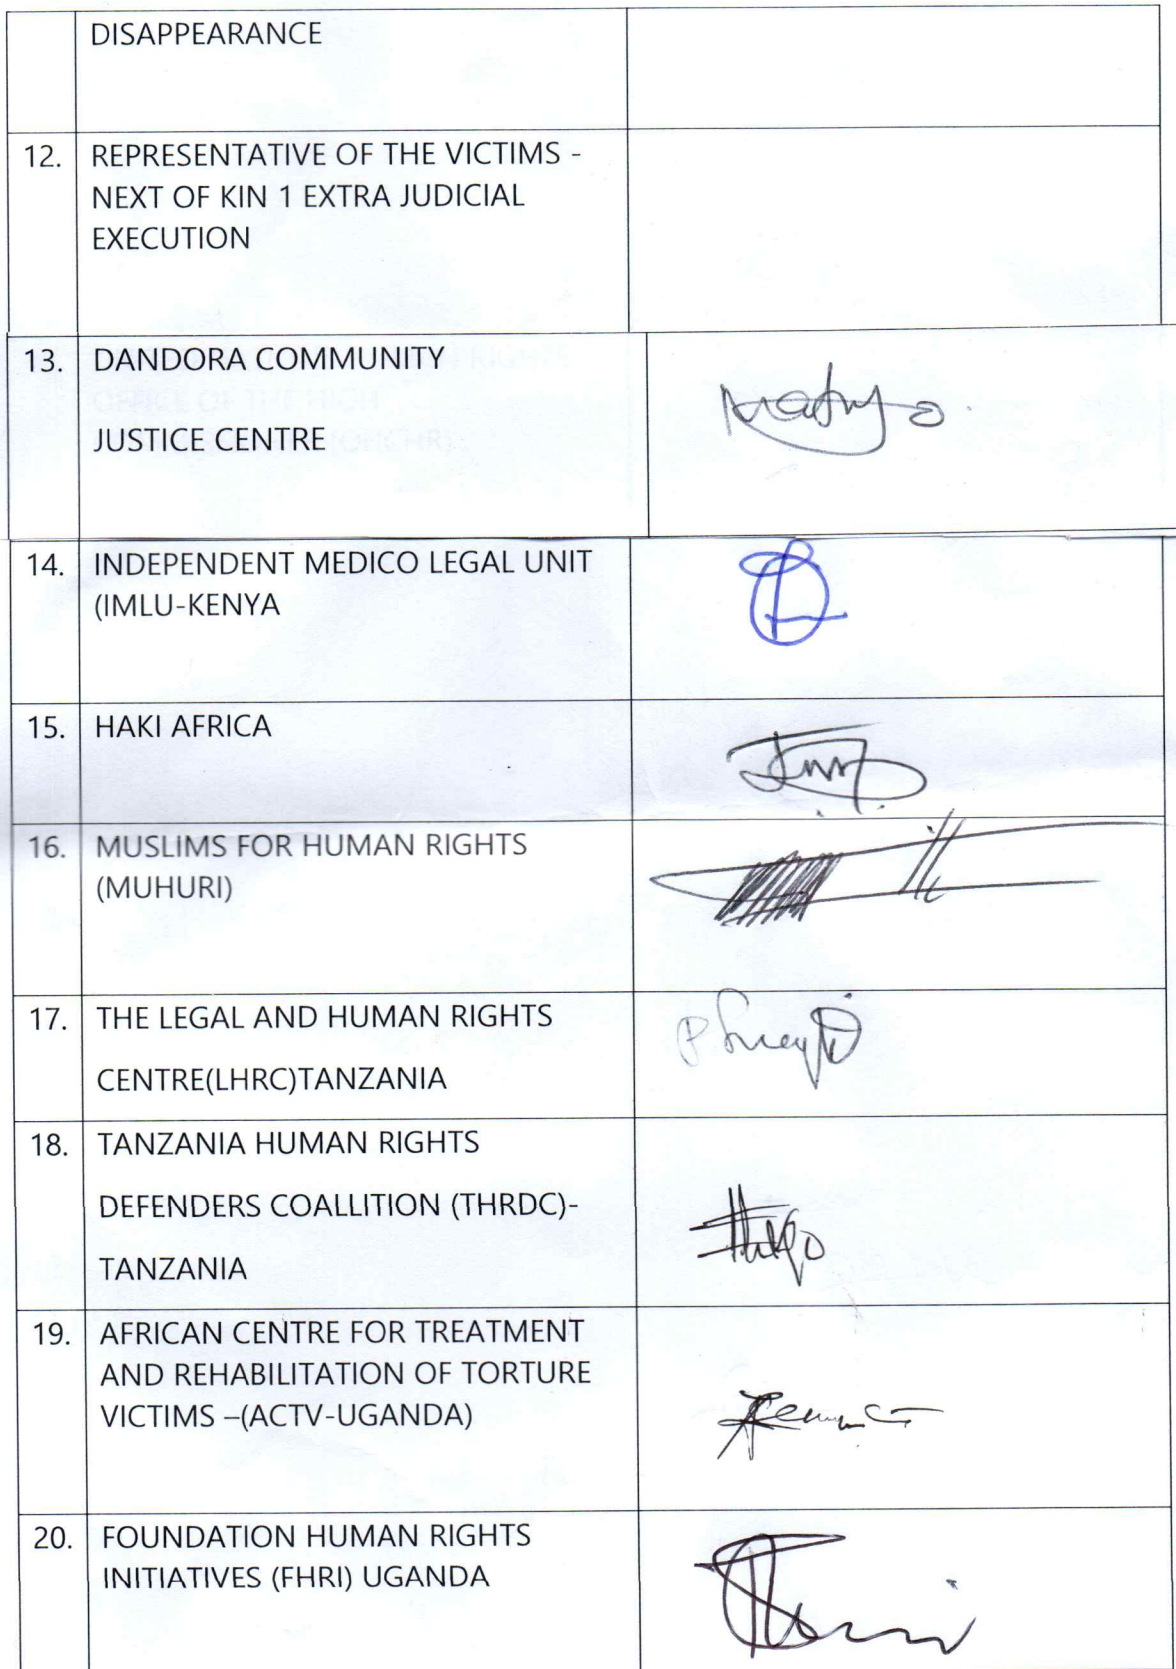 DISAPPEARANCE
12. REPRESENTATIVE OF THE VICTIMS -
NEXT OF KIN 1 EXTRA JUDICIAL
EXECUTION
13. DANDORA COMMUNITY
JUSTICE CENTRE
14. INDEPENDENT MEDICO LEGAL UNIT
(IMLU-KENYA
15. HAKI AFRICA
16. MUSLIMS FOR HUMAN RIGHTS
(MUHURI)
17. THE LEGAL AND HUMAN RIGHTS
CENTRE(LHRC)TANZANIA
18. TANZANIA HUMAN RIGHTS
DEFENDERS COALLITION (THRDC)-
TANZANIA
19. AFRICAN CENTRE FOR TREATMENT
AND REHABILITATION OF TORTURE
VICTIMS –(ACTV-UGANDA)
20. FOUNDATION HUMAN RIGHTS
INITIATIVES (FHRI) UGANDA